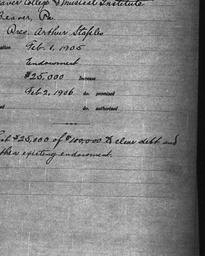 aver College & Musical Institute
Beaver, Pa.
Pres. Arthur Staples
ation Feb. 1, 1905
Endowment
$25,000 Increase
Feb 2, 1906 do. promised
ed do. authorized
st $25,000 of $100,000 to clear debt and
then existing endowment.